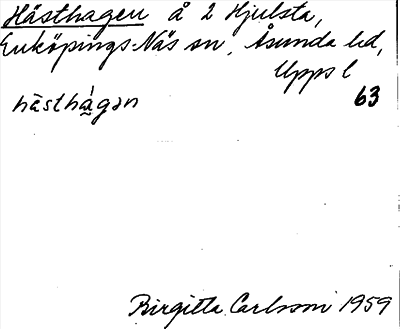 Hästhagen å 2 Hjulsta,
Enköpings-Näs sn, Åsunda hd,
Upps l
63
hästhágən
Birgitta Carlsson 1959